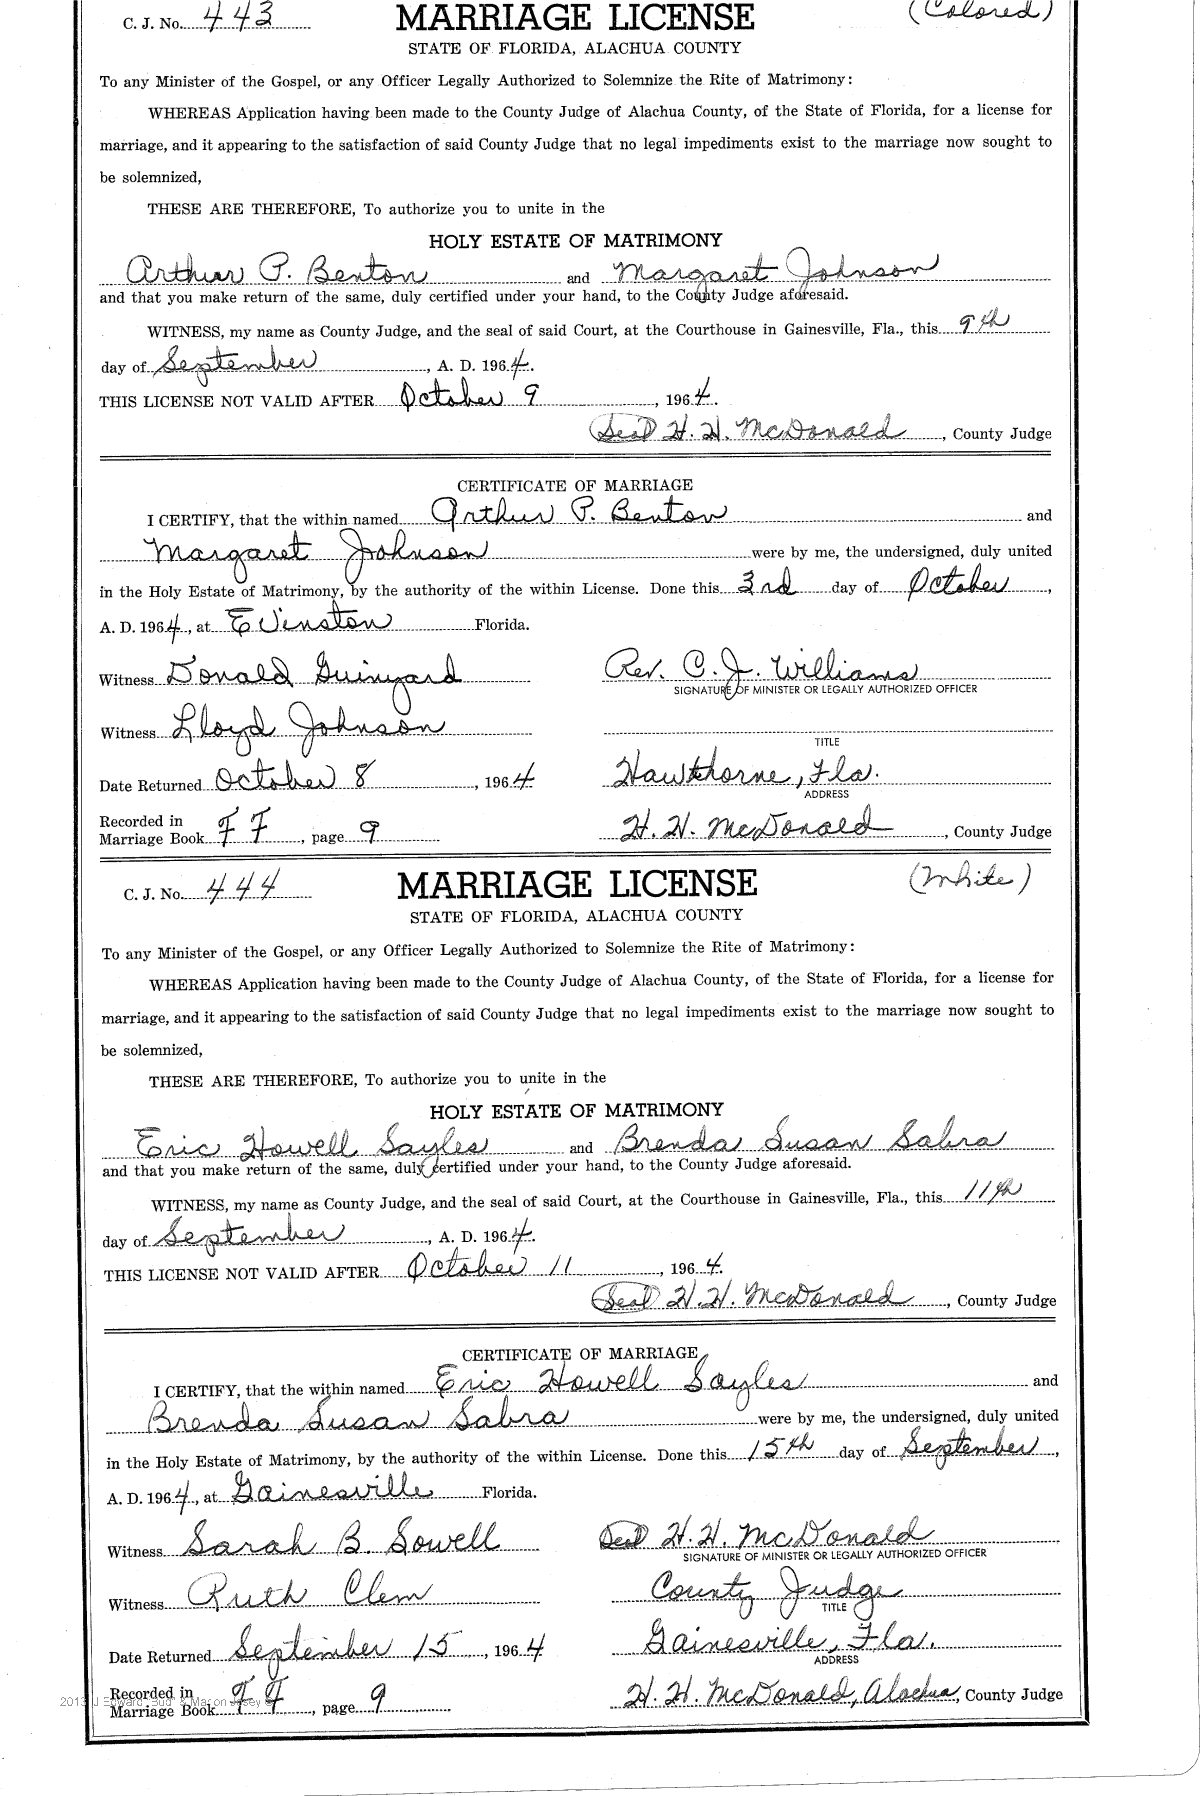 C. J. No. 443 MARRIAGE LICENSE (Colored)
STATE OF FLORIDA, ALACHUA COUNTY
To any Minister of the Gospel, or any Officer Legally Authorized to Solemnize the Rite of Matrimony:
WHEREAS Application having been made to the County Judge of Alachua County, of the State of Florida, for a license for
marriage, and it appearing to the satisfaction of said County Judge that no legal impediments exist to the marriage now sought to
be solemnized,
THESE ARE THEREFORE, To authorize you to unite in the
HOLY ESTATE OF MATRIMONY
Arthur P. Benton and Margaret Johnson
and that you make return of the same, duly certified under your hand, to the County Judge aforesaid.
WITNESS, my name as County Judge, and the seal of said Court, at the Courthouse in Gainesville, Fla., this 9th
day of September, A. D. 1964.
THIS LICENSE NOT VALID AFTER October 9, 1964.
Seal H. H. McDonald, County Judge
CERTIFICATE OF MARRIAGE
I CERTIFY, that the within named Arthur P. Benton and
Margaret Johnson were by me, the undersigned, duly united
in the Holy Estate of Matrimony, by the authority of the within License. Done this 3rd day of October,
A. D. 1964, at Evinston Florida.
Witness Donald Guinyard Rev. C. J. Williams
SIGNATURE OF MINISTER OR LEGALLY AUTHORIZED OFFICER
Witness Lloyd Johnson
TITLE
Date Returned October 8, 1964 Hawthorne, Fla.
ADDRESS
Recorded in
Marriage Book FF, page 9 H. H. McDonald, County Judge
C. J. No. 444 MARRIAGE LICENSE (White)
STATE OF FLORIDA, ALACHUA COUNTY
To any Minister of the Gospel, or any Officer Legally Authorized to Solemnize the Rite of Matrimony:
WHEREAS Application having been made to the County Judge of Alachua County, of the State of Florida, for a license for
marriage, and it appearing to the satisfaction of said County Judge that no legal impediments exist to the marriage now sought to
be solemnized,
THESE ARE THEREFORE, To authorize you to unite in the
HOLY ESTATE OF MATRIMONY
Eric Howell Sayles and Brenda Susan Sabra
and that you make return of the same, duly certified under your hand, to the County Judge aforesaid.
WITNESS, my name as County Judge, and the seal of said Court, at the Courthouse in Gainesville, Fla., this 11th
day of September, A. D. 1964.
THIS LICENSE NOT VALID AFTER October 11, 1964.
Seal H. H. McDonald, County Judge
CERTIFICATE OF MARRIAGE
I CERTIFY, that the within named Eric Howell Sayles and
Brenda Susan Sabra were by me, the undersigned, duly united
in the Holy Estate of Matrimony, by the authority of the within License. Done this 15th day of September,
A. D. 1964, at Gainesville Florida.
Witness Sarah B. Sowell Seal H. H. McDonald
SIGNATURE OF MINISTER OR LEGALLY AUTHORIZED OFFICER
Witness Ruth Clem County Judge
TITLE
Date Returned September 15, 1964 Gainesville, Fla.
ADDRESS
Recorded in
Marriage Book FF, page 9 H. H. McDonald, Alachua, County Judge